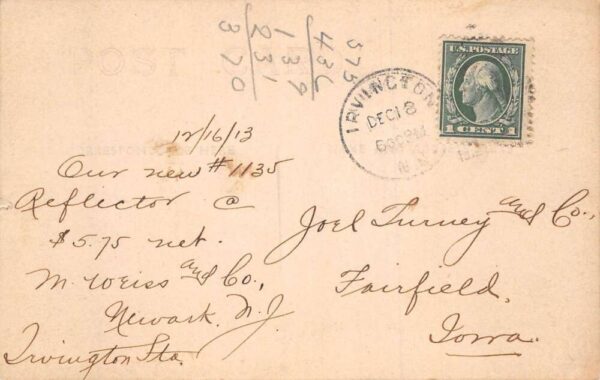 575
436
139
231
370
U.S.POSTAGE
1 CENT 1
IRVINGTON
DEC 18
N.J.
12/16/13
Our new #1135
Reflector @
$5.75 net.
M. Weiss and Co.,
Newark, N.J.
Irvington Sta.
Joel Turney and Co.,
Fairfield,
Iowa.